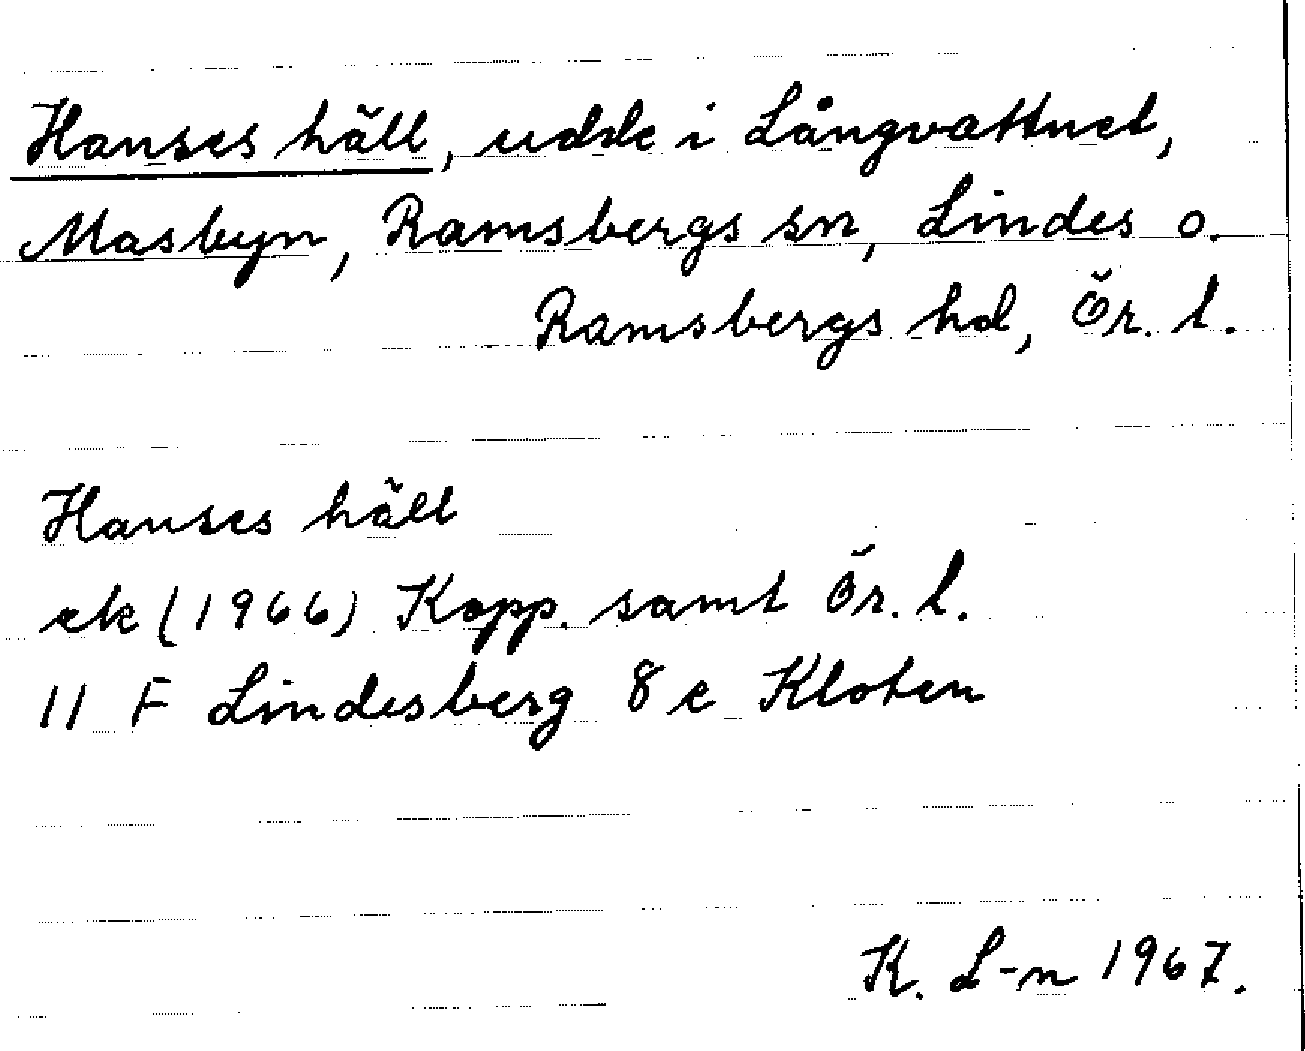 Hanses häll, udde i Långvattnet,
Masbyn, Ramsbergs sn, Lindes o.
Ramsbergs hd, Ör. l.
Hanses häll
ek (1966) Kopp. samt Ör. l.
11 F Lindesberg 8 e Kloten
K. L-n 1967.